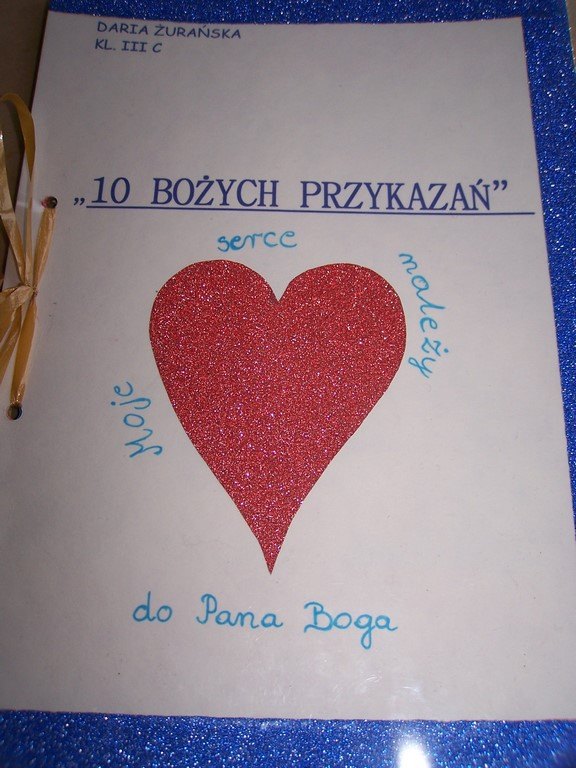 DARIA ŻURAŃSKA
KL. III C
„10 BOŻYCH PRZYKAZAŃ”
Moje
serce
należy
do Pana Boga